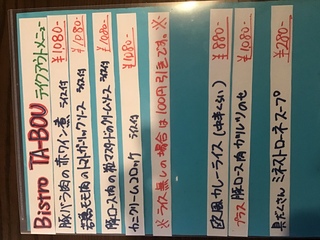 Bistro TA-BOU テイクアウトメニュー
豚バラ肉の赤ワイン煮 ライス付 ¥1080-
若鶏モモ肉のトマトガーリックソース ライス付 ¥1080-
豚ロース肉の粒マスタードのクリームソース ライス付 ¥1080-
カニクリームコロッケ ライス付 ¥1080-
※ライス無しの場合は100円引きです。※
欧風カレーライス (中辛くらい) ¥880-
プラス豚ロース肉カツレツのせ ¥1080-
具だくさんミネストローネスープ ¥280-